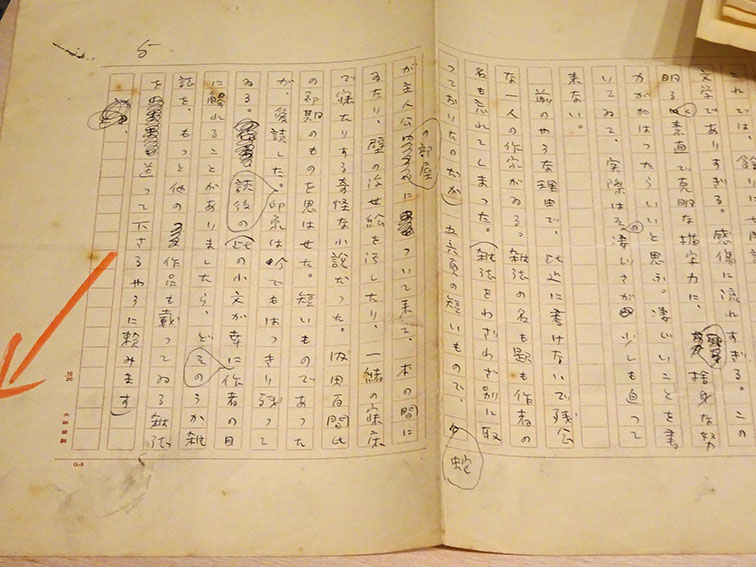 これでは、餘りに
文学でありすぎる。感傷に流れすぎる。この
明る素直で克明な描写力に、捨身な努
力が加はつたらいいと思ふ。凄じいことを書
いてゐて、実際はその凄じさが少しも迫って
来ない。
前のやうな理由で、此上に書けないで残念
な一人の作家がゐる。雑誌の名も題も作者の
名も忘れてしまつた。(雑誌をわざわざ別に取
つておいたのだが)五六頁の短いもので、蛇
が主人公の部屋について来て、本の間に
ゐたり、壁の浮世絵を汚したり、一緒の寝床
で寝たりする奇怪な小説だつた。内田百間氏
の初期のものを思はせた。短いものであった
が、愛読した。印象は今でもはつきり残つて
ゐる。読後の(此の小文が幸に作者の目
に觸れることがありましたら、どうかその雑
誌を、もつと他の作品も載つてゐる雑誌
を送つて下さるやうに頼みます)
5